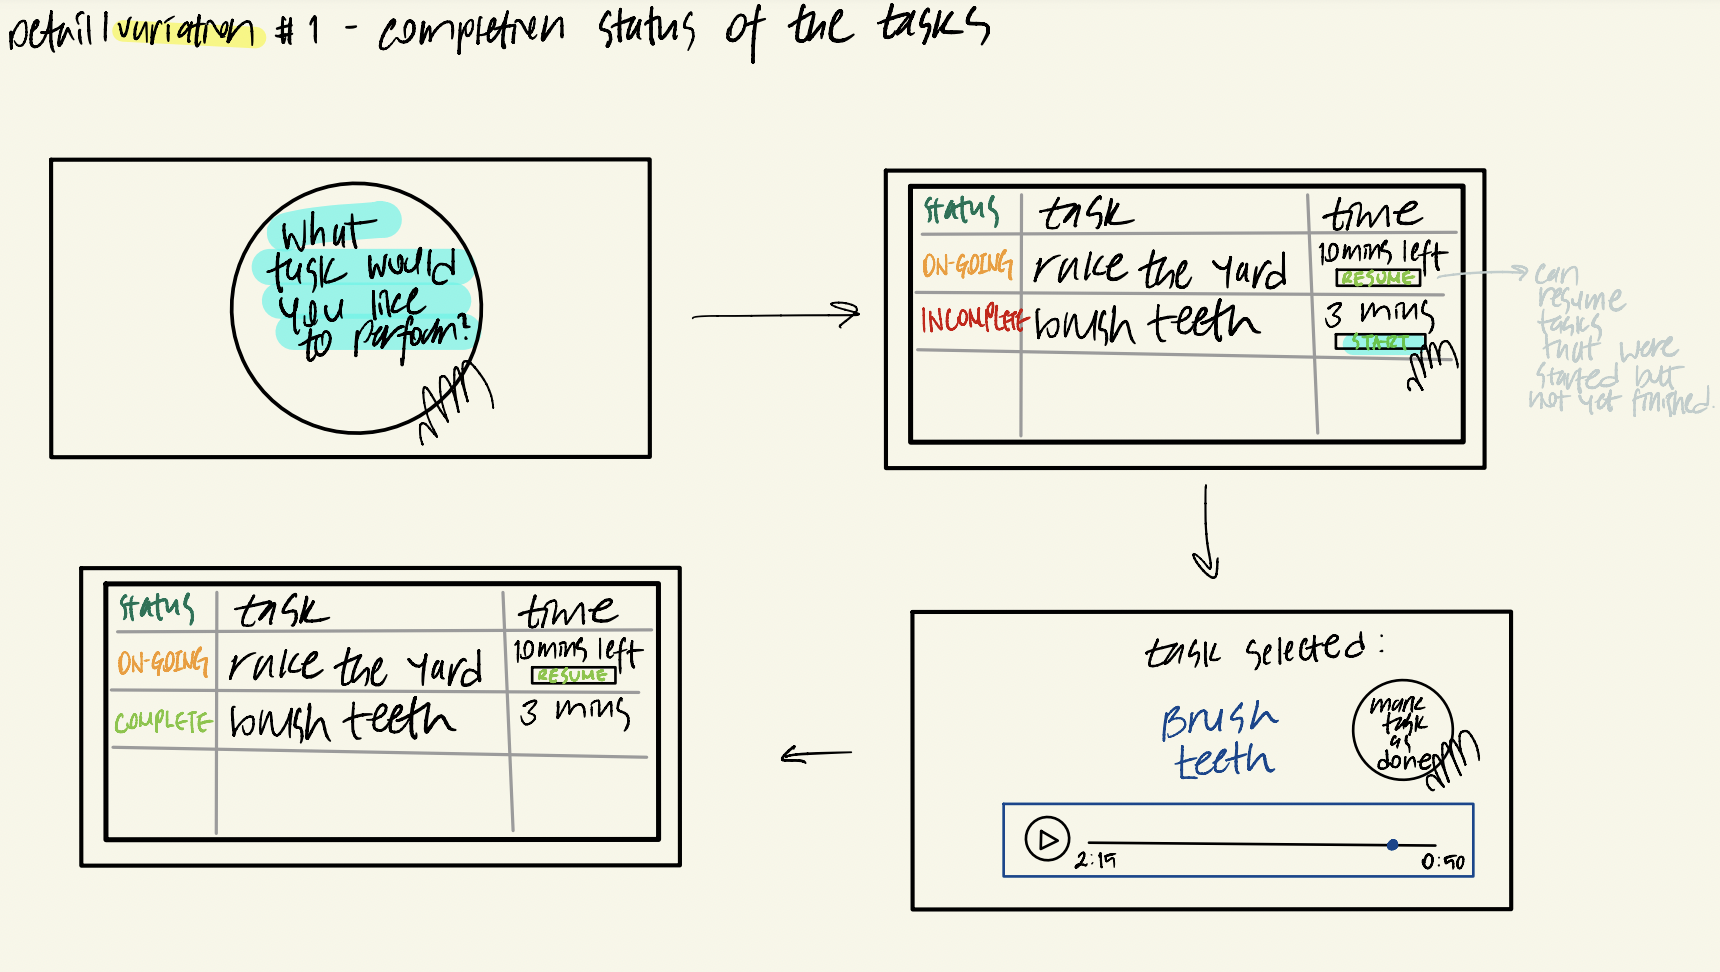 Detail variation #1 - completion status of the tasks
What
task would
you like
to perform?
status task time
ON-GOING rake the yard 10 mins left
RESUME
INCOMPLETE brush teeth 3 mins
START
can
resume
tasks
that were
started but
not yet finished.
task selected:
Brush
teeth
mark
task
as
done
2:15 0:50
status task time
ON-GOING rake the yard 10 mins left
RESUME
COMPLETE brush teeth 3 mins